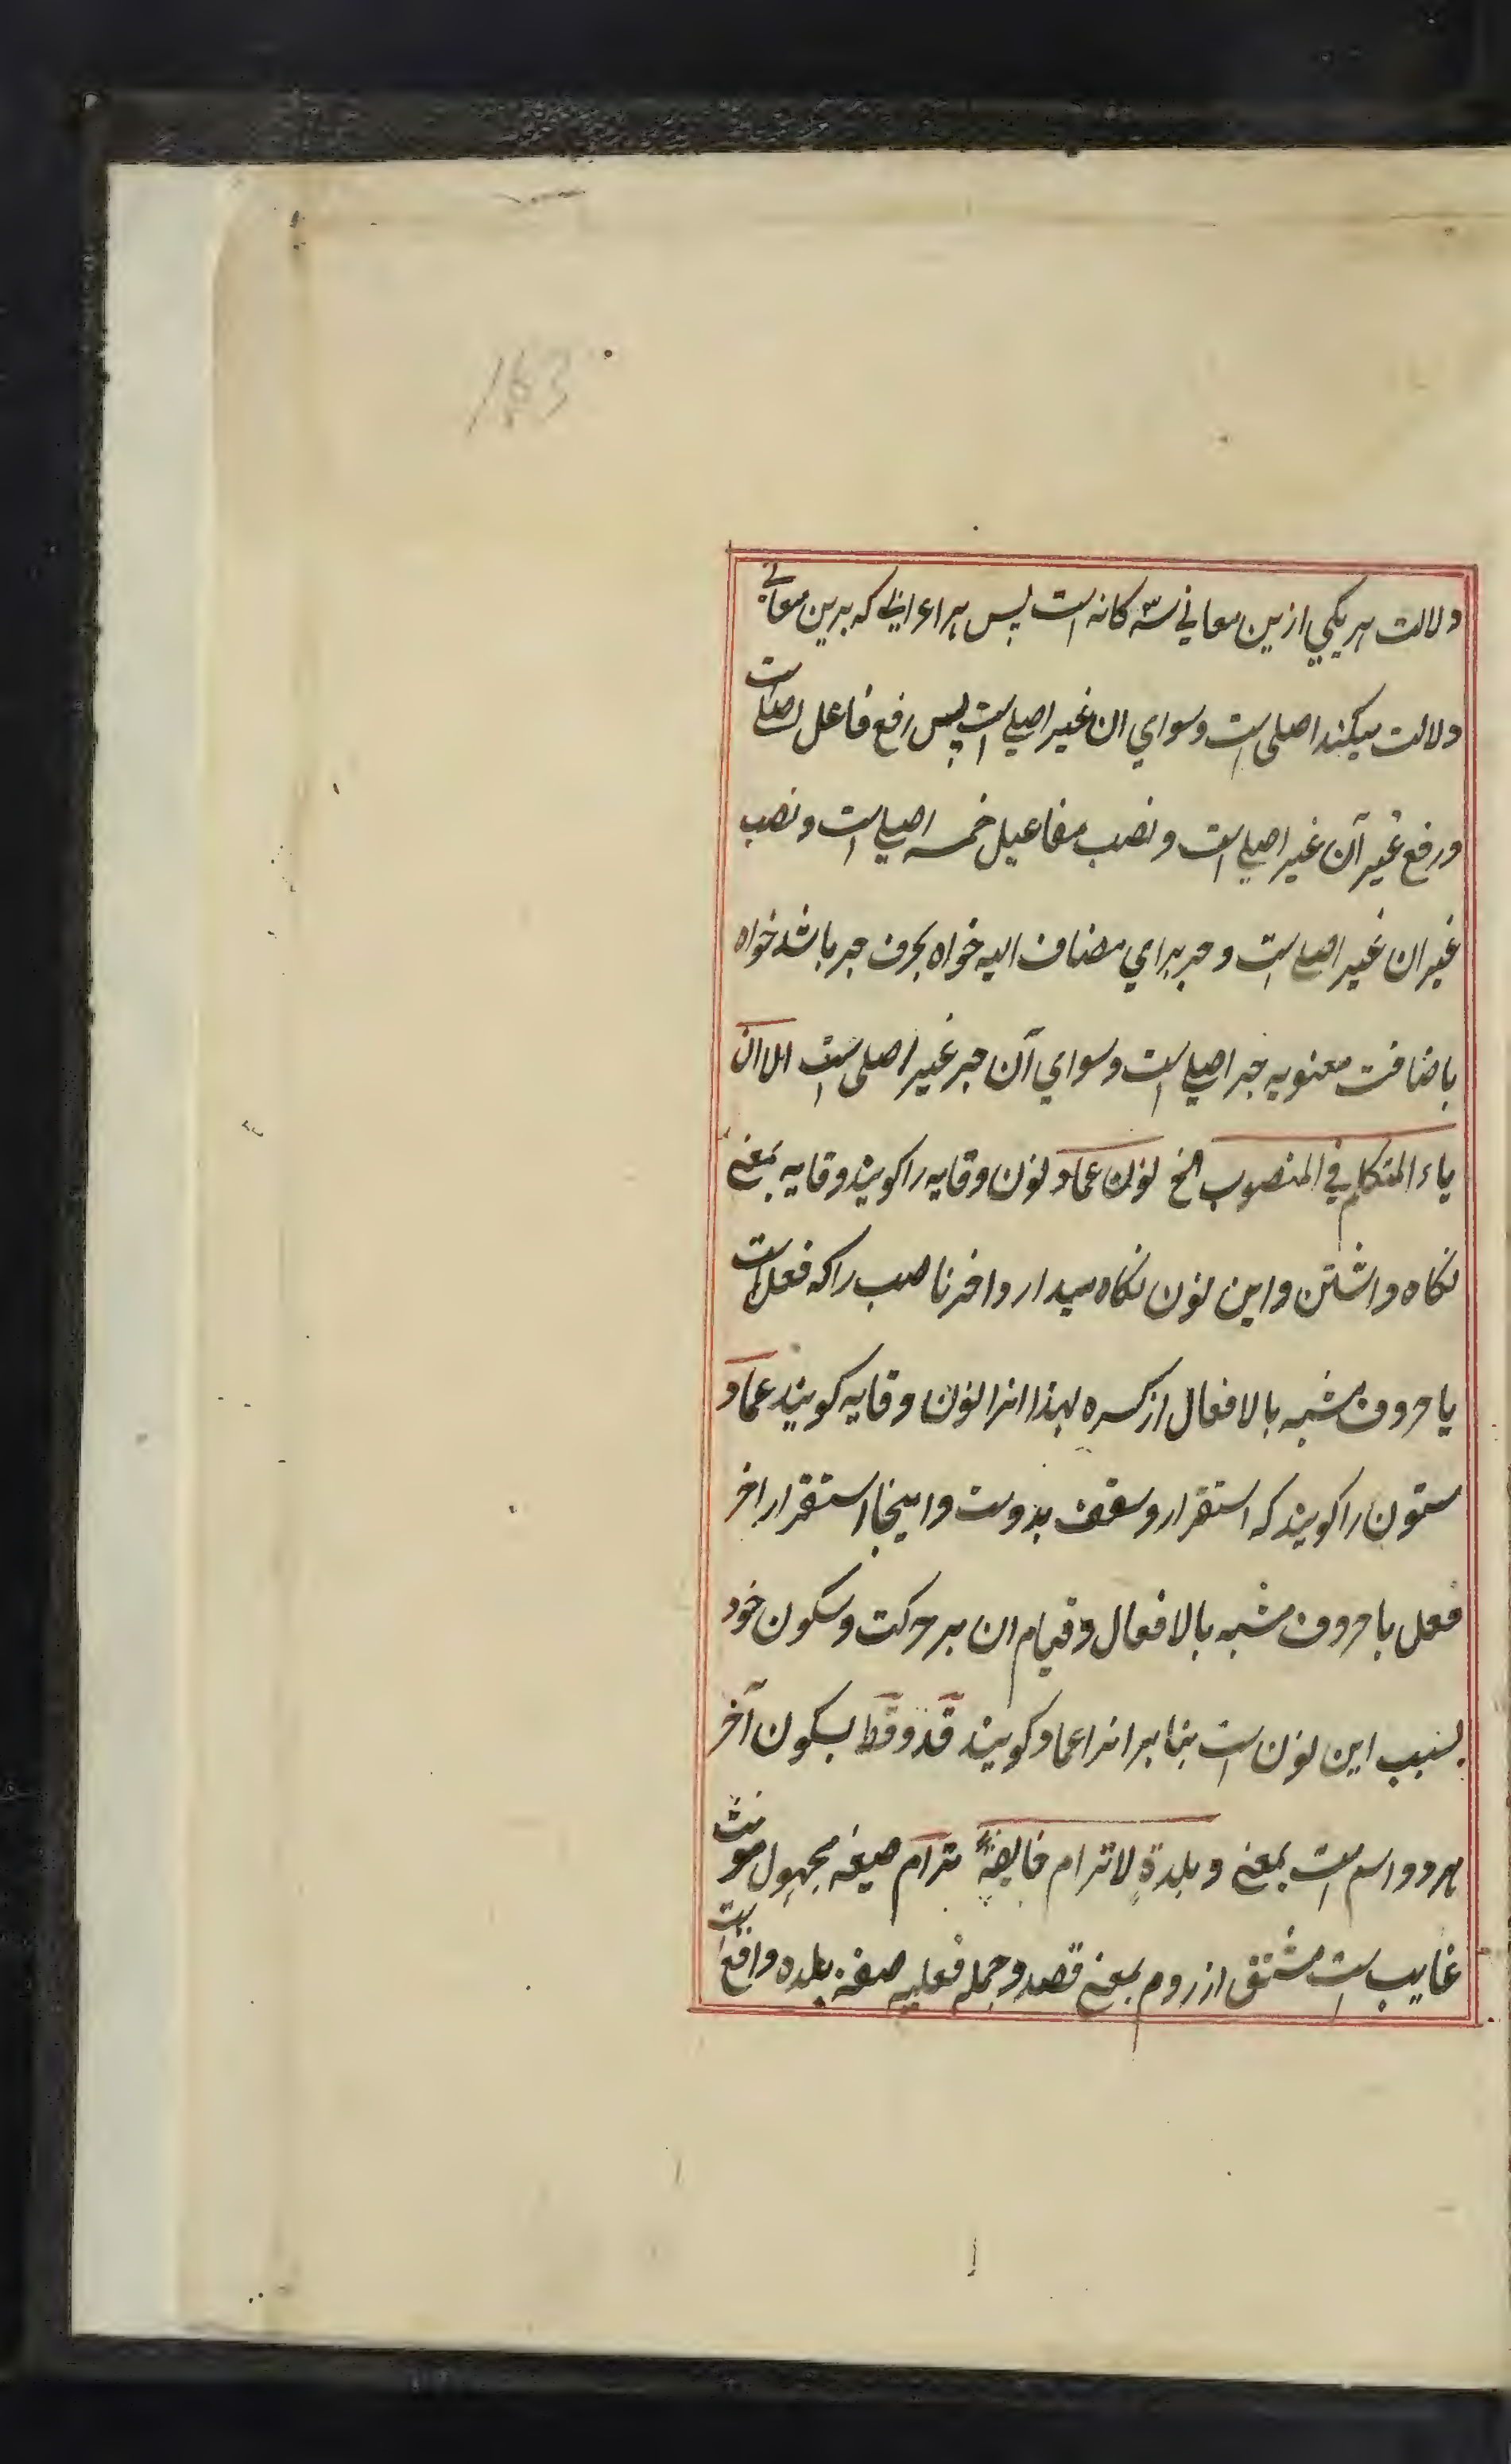 163
دلالت هر یکی ازین معانی سه کانه است پس هر اعرابی که برین معانی
دلالت میکند اصلی است و سوای ان غیر اصلی است پس رفع فاعل اصلی است
و رفع غیر آن غیر اصلی است و نصب مفاعیل خمسه اصلی است و نصب
غیر ان غیر اصلی است و جر برای مضاف الیه خواه بحرف جر باشد خواه
باضافت معنویه جر اصلی است و سوای آن جر غیر اصلی است الا ان
یاء المتکلم فی المنصوب الخ نون عماد نون وقایه را کویند وقایه بمعنی
نکاه داشتن و این نون نکاه میدارد اخر ناصب را که فعل است
یا حروف مشبه بالافعال از کسره لهذا انرا نون وقایه کویند عماد
ستون را کویند که استقرار و سقف بدوست و اینجا استقرار اخر
فعل با حروف مشبه بالافعال و قیام ان بر حرکت و سکون خود
بسبب این نون است بنا بر انرا عماد کویند قد و قط بسکون آخر
هر دو اسم است بمعنی و بلدة لا ترام ترام صیغه مجهول مونث
غایب است مشتق از روم بمعنی قصد و جمله فعلیه صفة بلده واقع است